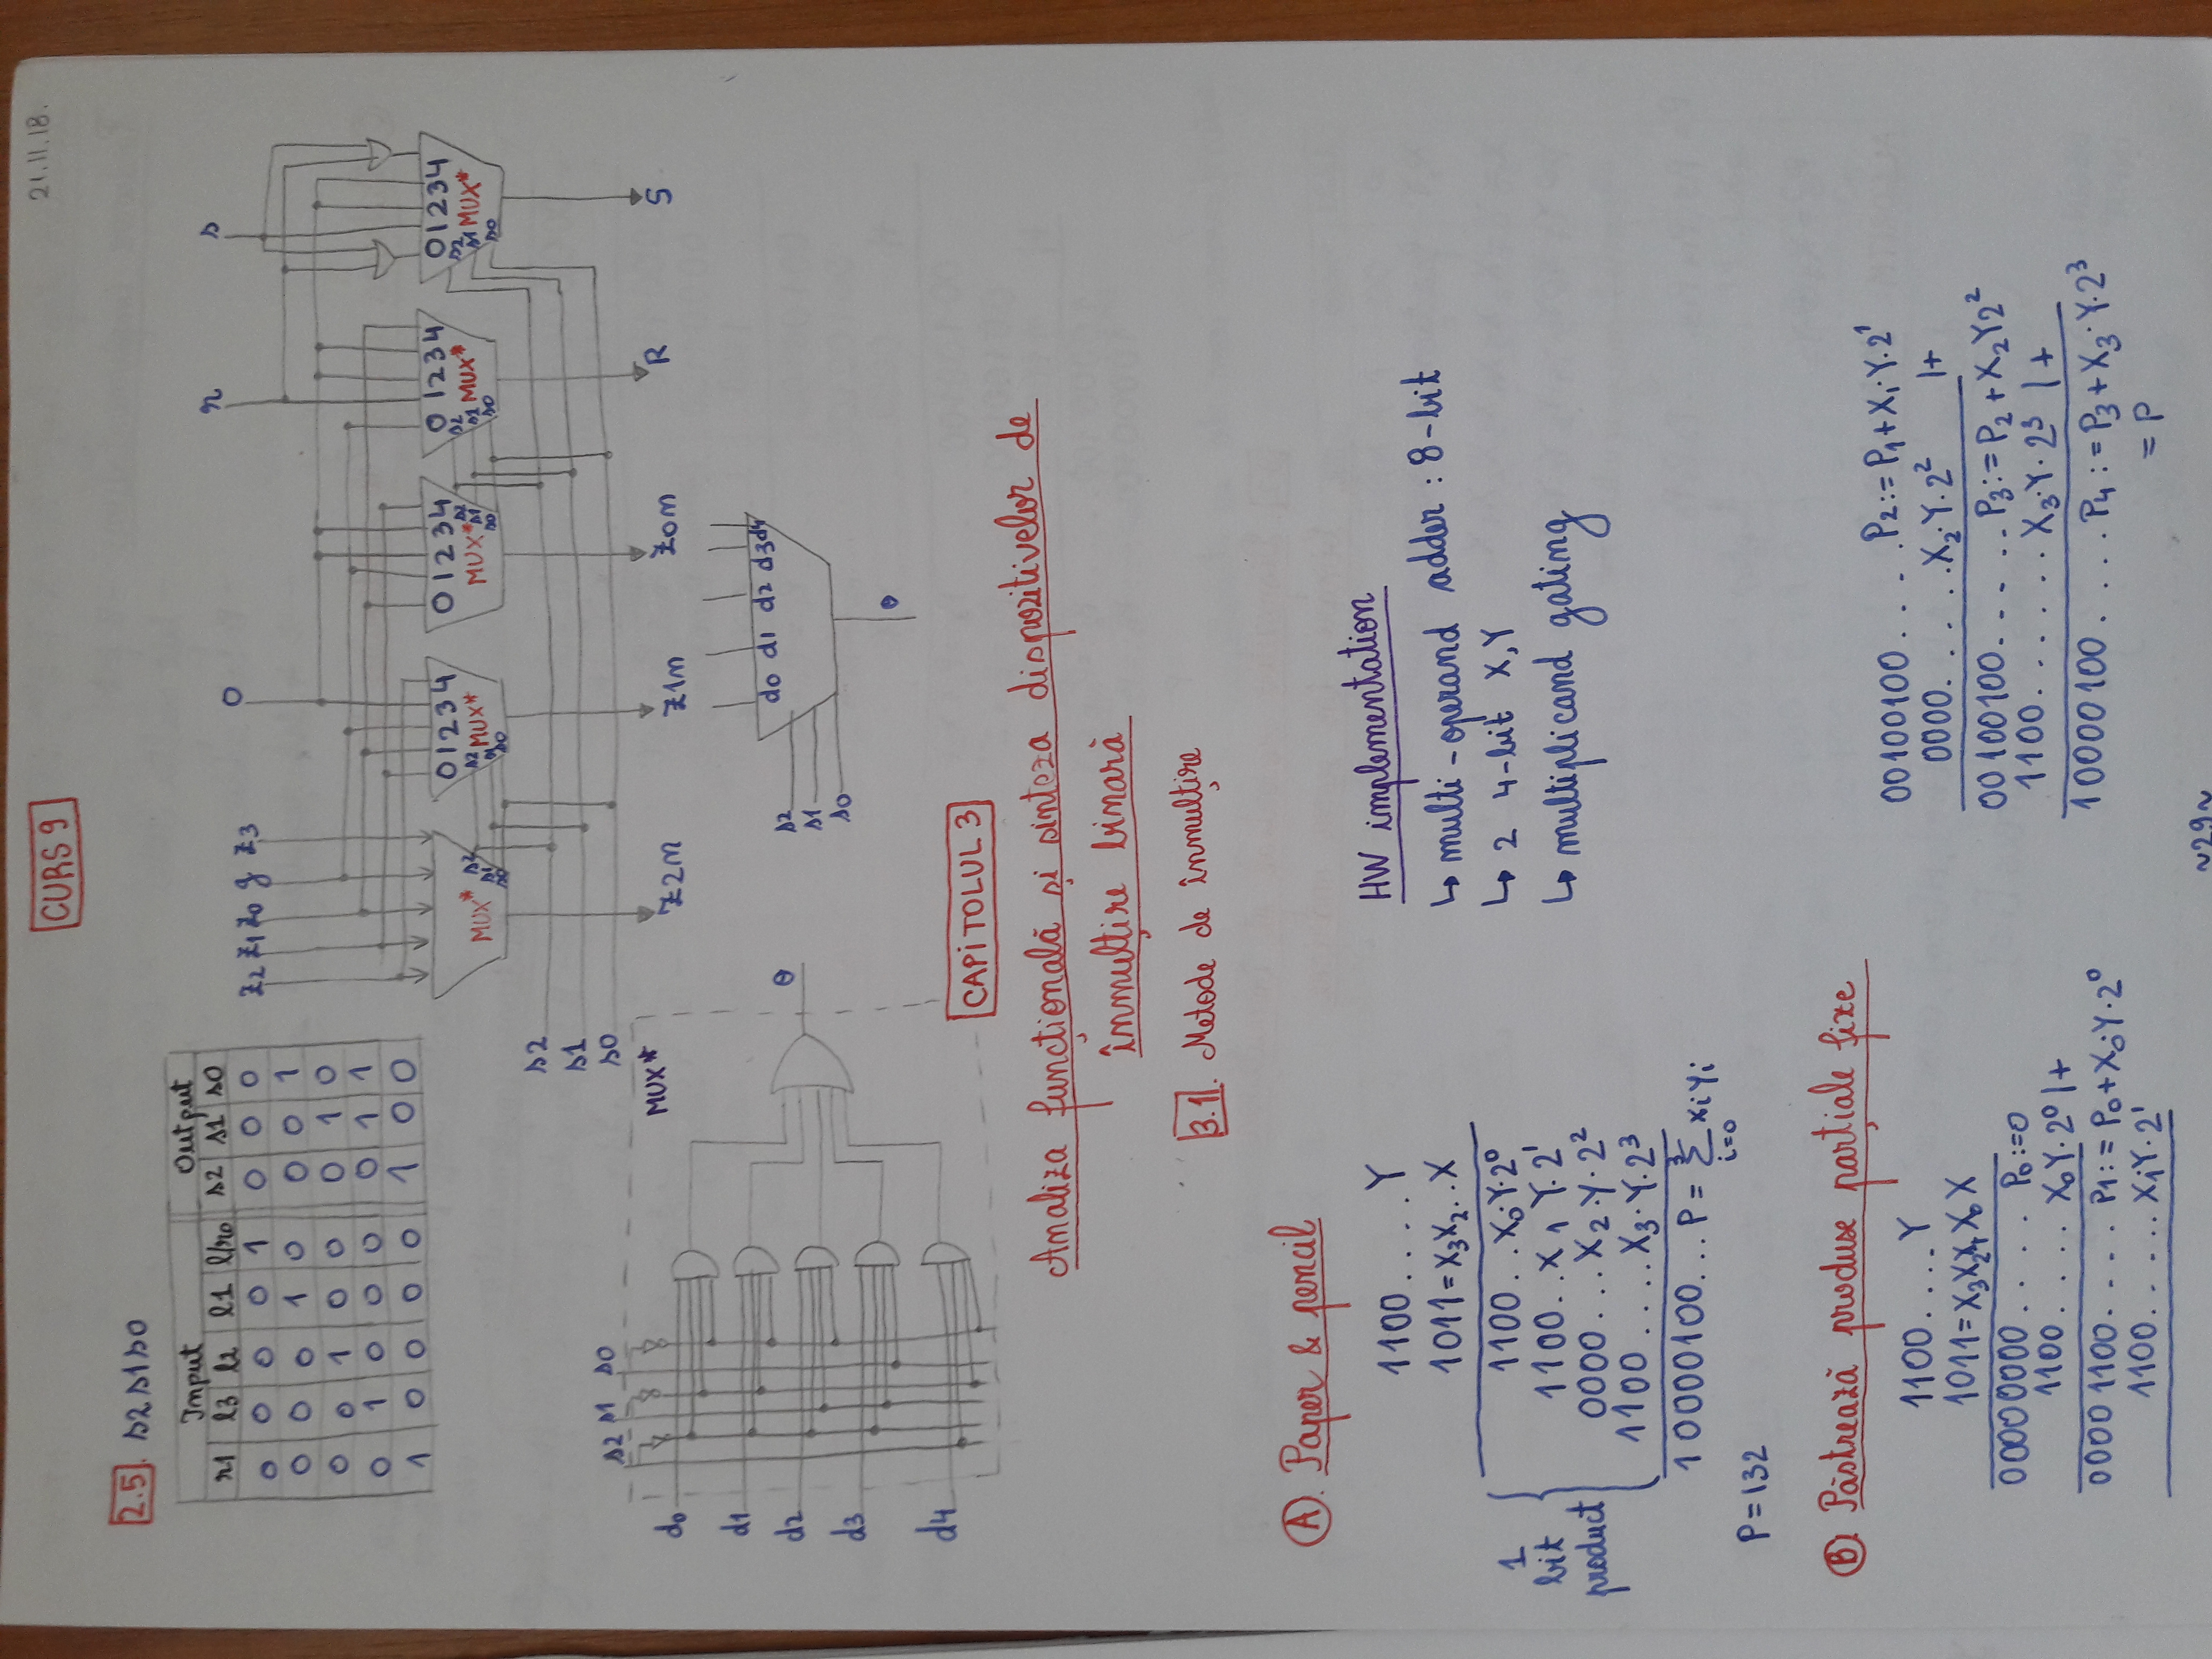 21.11.18.
CURS 9
2.5. s2 s1 s0
Input Output
r1 l3 l2 l1 l/r0 s2 s1 s0
0 0 0 0 1 0 0 0
0 0 0 1 0 0 0 1
0 0 1 0 0 0 1 0
0 1 0 0 0 0 1 1
1 0 0 0 0 1 0 0
z2 z1 z0 g z3 0 r s
0 1 2 3 4 0 1 2 3 4 0 1 2 3 4 0 1 2 3 4
MUX* s2 s1 s0
s2 s1 s0 MUX*
MUX* s2 s1 s0
s2 s1 s0 MUX*
s2 s1 s0 MUX*
s2
s1
s0
Z2n Z1n Z0n R S
s2 s1 s0
MUX*
d0
d1
d2
d3
d4
θ
d0 d1 d2 d3 d4
s2
s1
s0
θ
CAPITOLUL 3
Analiza funcțională și sinteza dispozitivelor de
înmulțire binară
3.1. Metode de înmulțire
A. Paper & pencil
1100.....Y
1011=X3X2..X
1 bit product
1100..X0·Y·2⁰
1100..X1 Y·2¹
0000...X2·Y·2²
1100.....X3·Y·2³
10000100...P = Σ xi yi
3
i=0
P=132
HW implementation
↳ multi-operand adder : 8-bit
↳ 2 4-bit X,Y
↳ multiplicand gating
B. Păstrează produse parțiale fixe
1100....Y
1011=X3X2X1X0 X
00000000.... P0:=0
1100..... X0Y·2⁰ |+
00001100.... P1:=P0+X0·Y·2⁰
1100...... X1Y·2¹
00100100.....P2:=P1+X1·Y·2¹
0000......X2·Y·2² |+
00100100......P3:=P2+X2Y2²
1100.......X3·Y·2³ |+
10000100.....P4:=P3+X3·Y·2³
=P
~29~